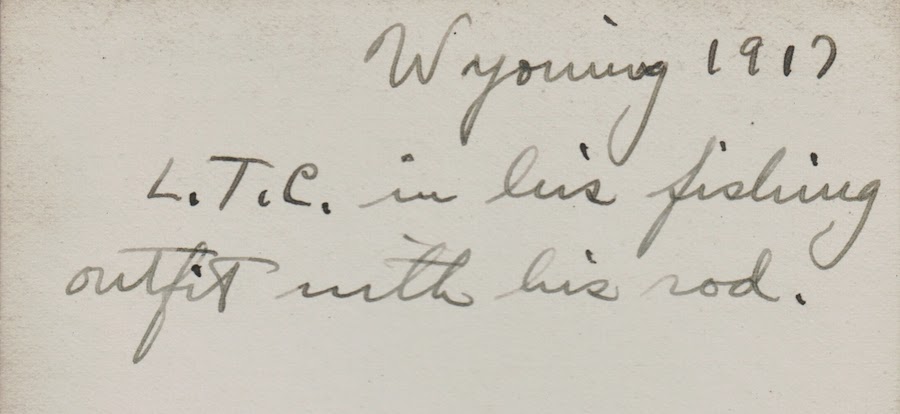 Wyoming 1917
L.T.C. in his fishing
outfit with his rod.